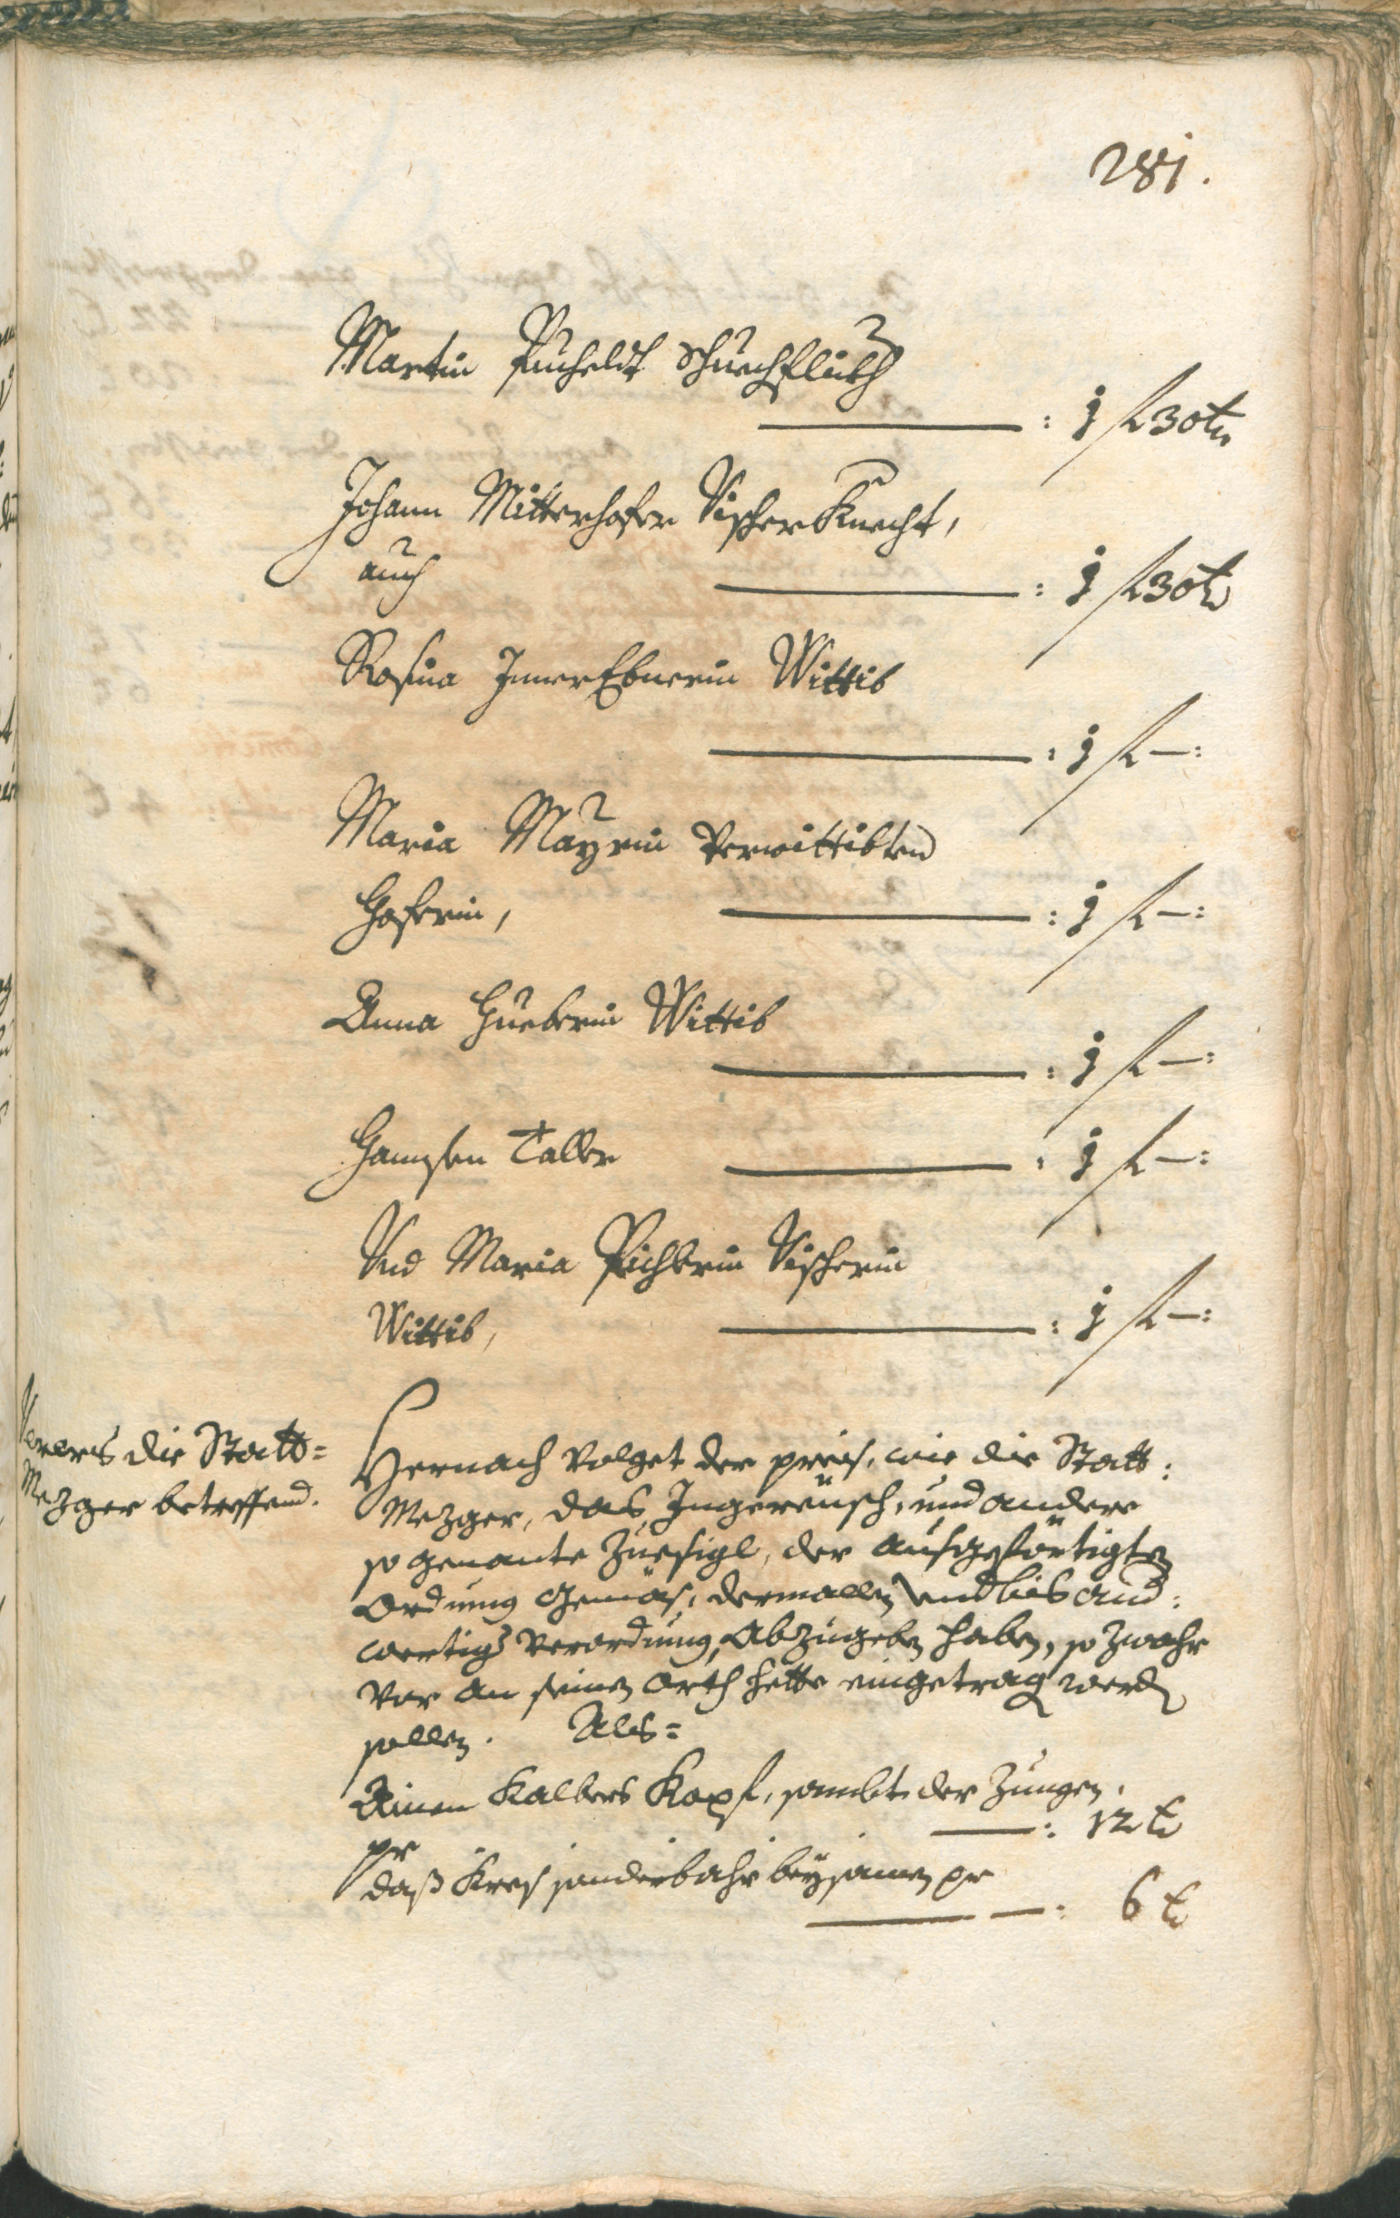 281.
Martin Pucheldt Schuechflickh
: 1 f 30 kr
Johann Mitterhofer Vischer Knecht,
auch : 1 f 30 kr
Rosina InnerEbnerin Wittib
: 1 f —:
Maria Mayrin Verwittibten
Hoferin, : 1 f —:
Anna Hueberin Wittib
: 1 f —:
Hannsen Taller : 1 f —:
Und Maria Pichlerin Vischerin
Wittib, : 1 f —:
die Statt=
Mezger betreffend.
Hernach Volget der preis, wie die Statt:
Mezger, das Ingereusch, und andere
so genante Zuesigl, der ausgeförtigten
Ordnung gemäs, dermallen und bis and:
wertige Verordnung, Abzugeben haben, so zwahr
Vor an seinen Orth hette eingetragen werden
sollen. Als=
Ainen Kalbers Kopf, sambt der Zungen,
pr : 12 kr
daß Kres sonderbahr beysamen pr
: 6 kr